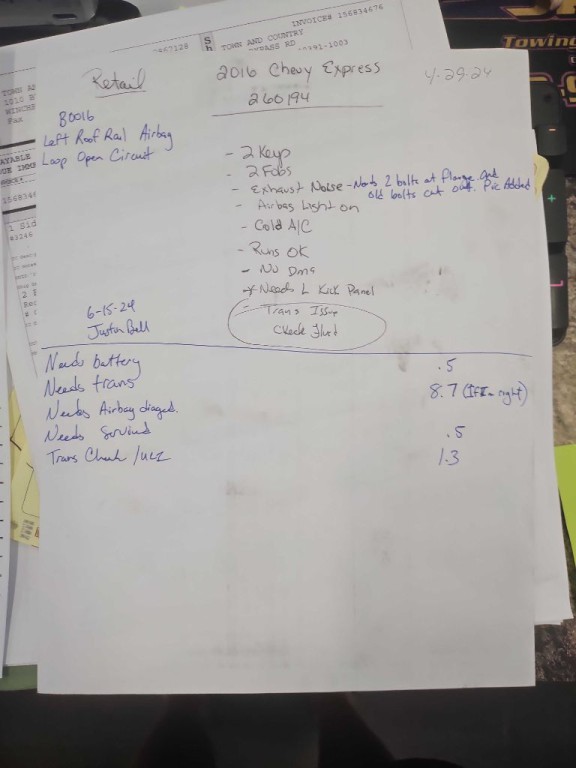 INVOICE# 156834676
TOWN AND COUNTRY
Towing
Retail
2016 Chevy Express
4-29-24
260194
B0016
Left Roof Rail Airbag
Loop Open Circuit
- 2 Keys
- 2 Fobs
- Exhaust Noise - Needs 2 bolts at flange and
old bolts cut out. Pic Added
- Airbag Light on
- Cold A/C
- Runs OK
- No Dmg
* Needs L Kick Panel
- Trans Issue
Check Fluid
6-15-24
Justin Bell
Needs battery .5
Needs trans 8.7 (If I'm right)
Needs Airbag diaged.
Needs Serviced .5
Trans Check 1.3